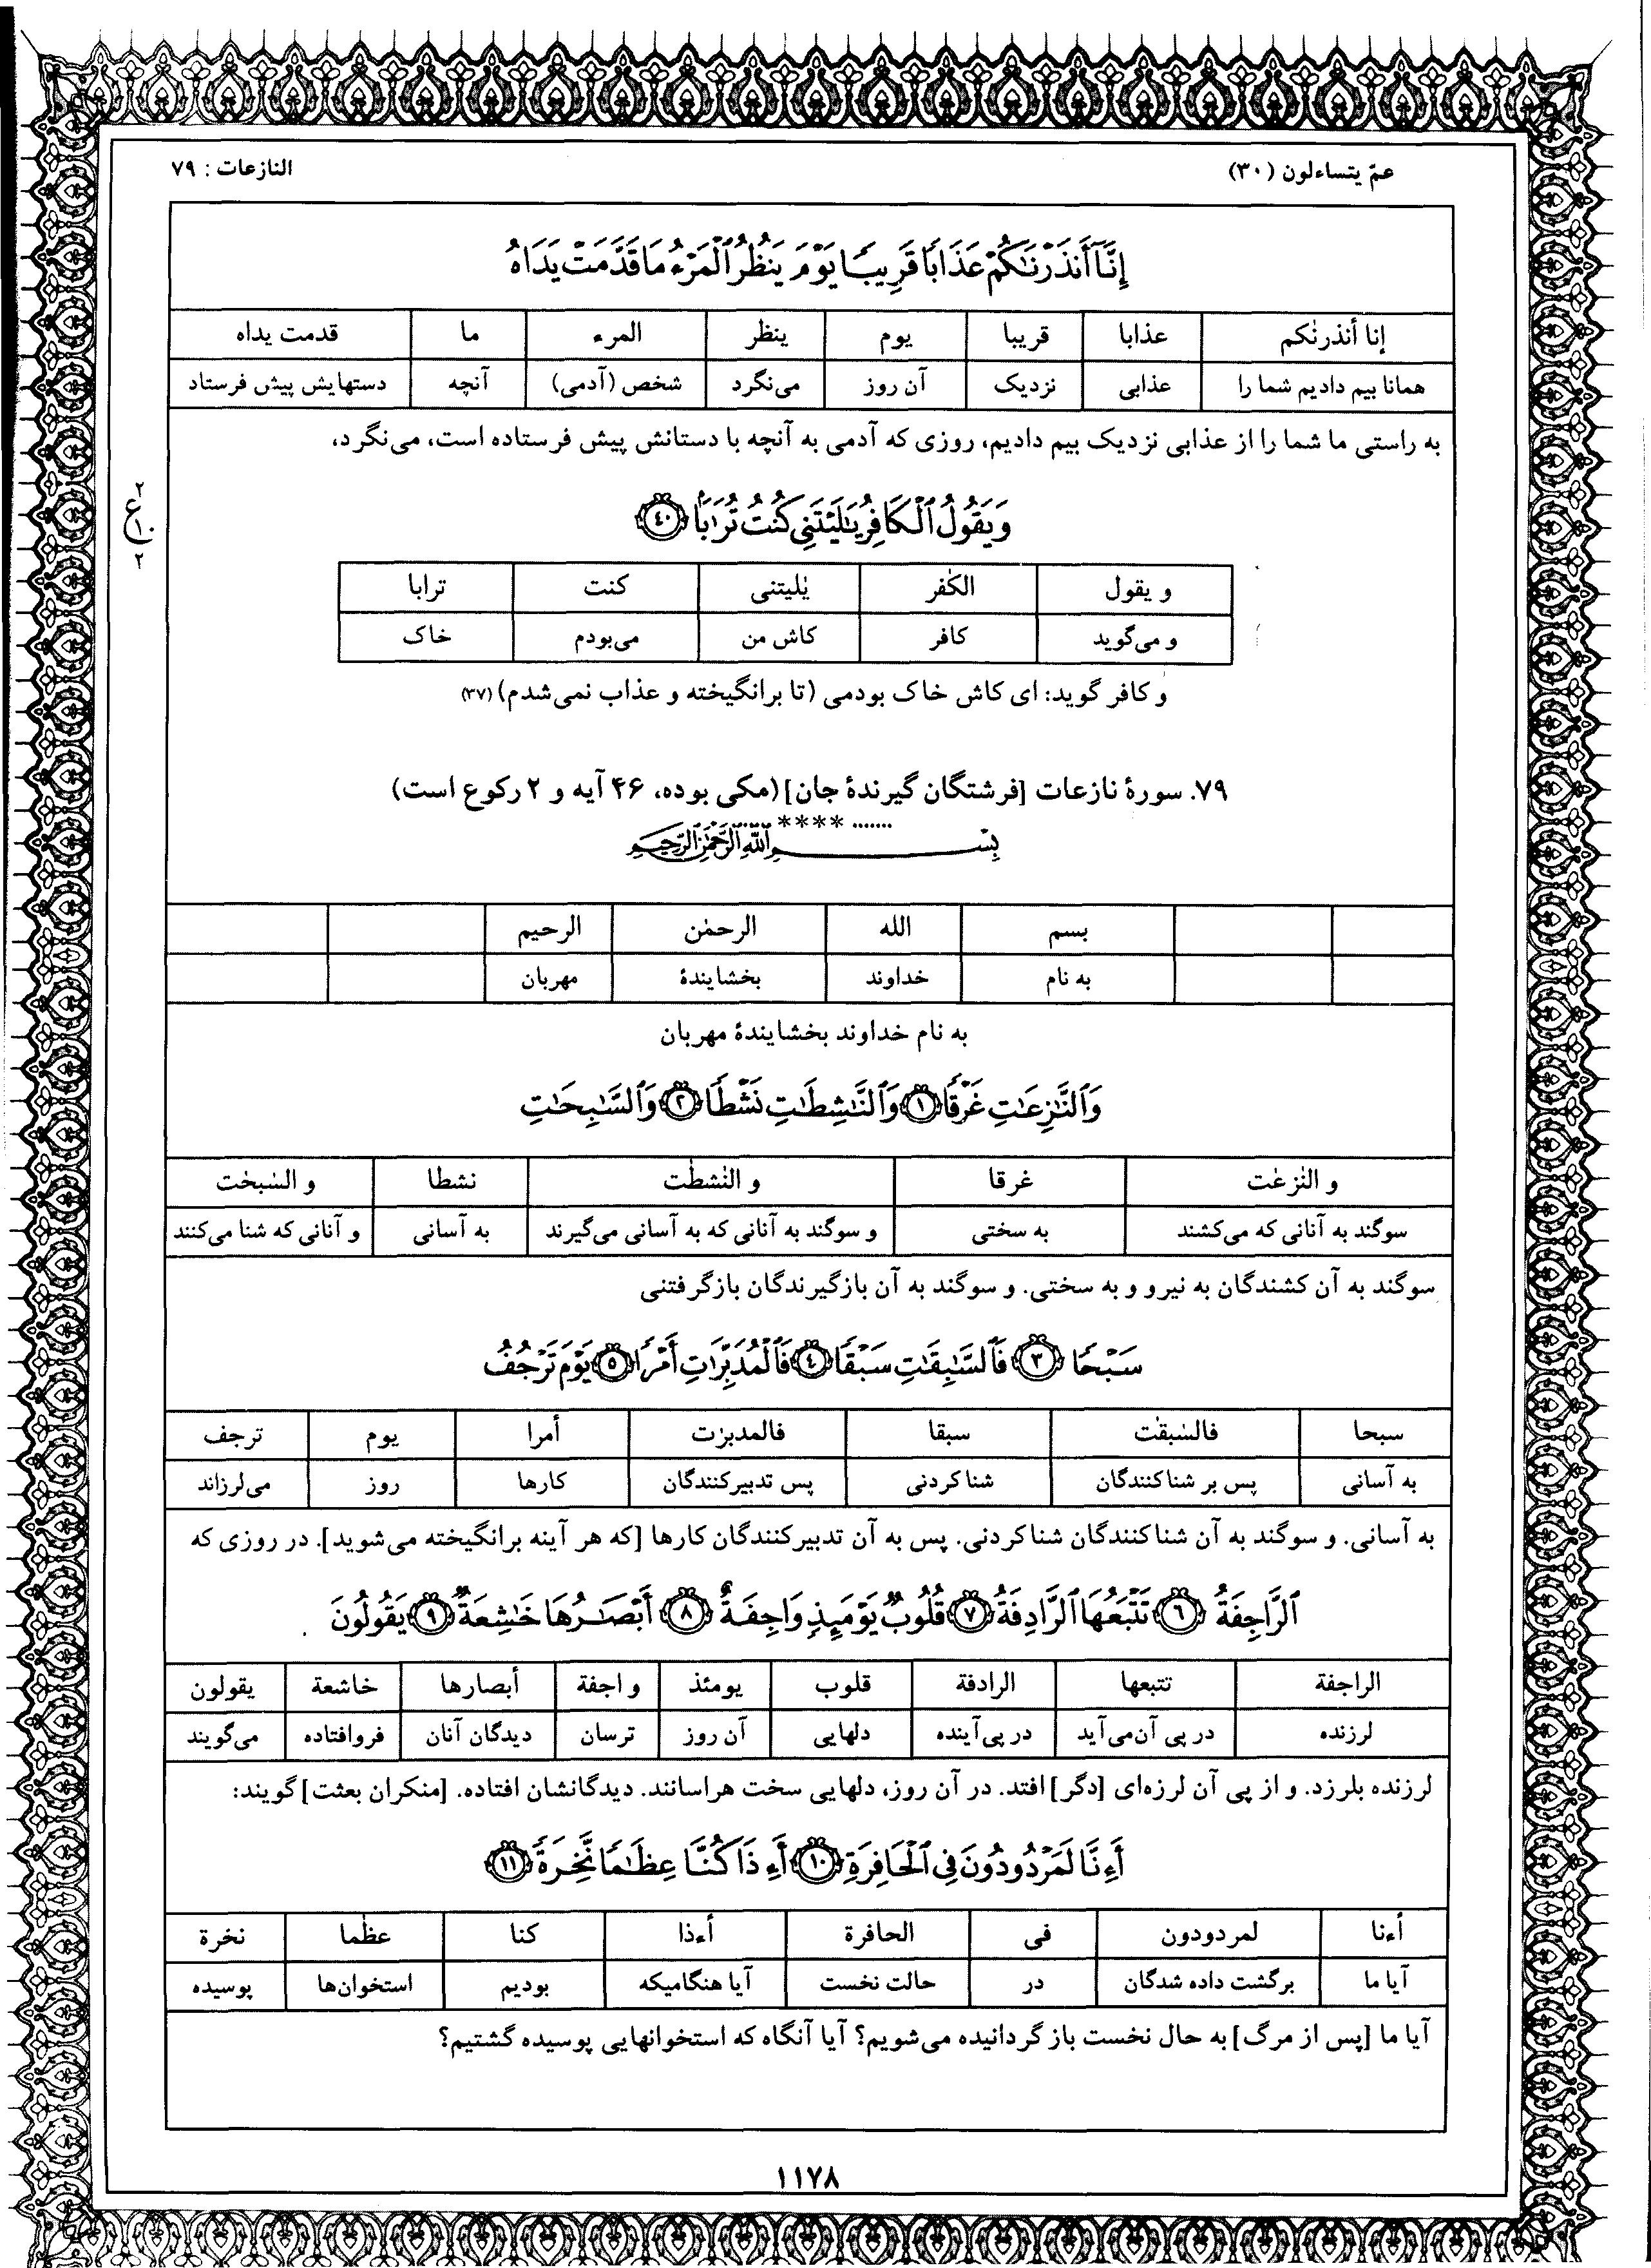 عمّ یتساءلون (۳۰)
النازعات : ۷۹
إِنَّآ أَنذَرْنَٰكُمْ عَذَابًا قَرِيبًا يَوْمَ يَنظُرُ ٱلْمَرْءُ مَا قَدَّمَتْ يَدَاهُ
إنا أنذرنٰكم عذابا قریبا یوم ینظر المرء ما قدمت یداه
همانا بیم دادیم شما را عذابی نزدیک آن روز می‌نگرد شخص (آدمی) آنچه دستهایش پیش فرستاد
به راستی ما شما را از عذابی نزدیک بیم دادیم، روزی که آدمی به آنچه با دستانش پیش فرستاده است، می‌نگرد،
وَيَقُولُ ٱلْكَافِرُ يَٰلَيْتَنِى كُنتُ تُرَٰبًا ٤٠
۲
ع
۱۰
۲
و یقول الکٰفر یٰلیتنی کنت ترابا
و می‌گوید کافر کاش من می‌بودم خاک
و کافر گوید: ای کاش خاک بودمی (تا برانگیخته و عذاب نمی‌شدم) (۳۷)
۷۹. سورهٔ نازعات [فرشتگان گیرندهٔ جان] (مکی بوده، ۴۶ آیه و ۲ رکوع است)
....... ****
بِسْمِ ٱللَّهِ ٱلرَّحْمَٰنِ ٱلرَّحِيمِ
بسم الله الرحمٰن الرحیم
به نام خداوند بخشایندهٔ مهربان
به نام خداوند بخشایندهٔ مهربان
وَٱلنَّٰزِعَٰتِ غَرْقًا ١ وَٱلنَّٰشِطَٰتِ نَشْطًا ٢ وَٱلسَّٰبِحَٰتِ
و النٰزعٰت غرقا و النٰشطٰت نشطا و السٰبحٰت
سوگند به آنانی که می‌کشند به سختی و سوگند به آنانی که به آسانی می‌گیرند به آسانی و آنانی که شنا می‌کنند
سوگند به آن کشندگان به نیرو و به سختی. و سوگند به آن بازگیرندگان بازگرفتنی
سَبْحًا ٣ فَٱلسَّٰبِقَٰتِ سَبْقًا ٤ فَٱلْمُدَبِّرَٰتِ أَمْرًا ٥ يَوْمَ تَرْجُفُ
سبحا فالسٰبقٰت سبقا فالمدبرٰت أمرا یوم ترجف
به آسانی پس بر شناکنندگان شناکردنی پس تدبیرکنندگان کارها روز می‌لرزاند
به آسانی. و سوگند به آن شناکنندگان شناکردنی. پس به آن تدبیرکنندگان کارها [که هر آینه برانگیخته می‌شوید]. در روزی که
ٱلرَّاجِفَةُ ٦ تَتْبَعُهَا ٱلرَّادِفَةُ ٧ قُلُوبٌ يَوْمَئِذٍ وَاجِفَةٌ ٨ أَبْصَٰرُهَا خَٰشِعَةٌ ٩ يَقُولُونَ
الراجفة تتبعها الرادفة قلوب یومئذ واجفة أبصارها خاشعة یقولون
لرزنده در پی آن می‌آید در پی آینده دلهایی آن روز ترسان دیدگان آنان فروافتاده می‌گویند
لرزنده بلرزد. و از پی آن لرزه‌ای [دگر] افتد. در آن روز، دلهایی سخت هراسانند. دیدگانشان افتاده. [منکران بعثت] گویند:
أَءِنَّا لَمَرْدُودُونَ فِى ٱلْحَافِرَةِ ١٠ أَءِذَا كُنَّا عِظَٰمًا نَّخِرَةً ١١
أءنا لمردودون فی الحافرة أءذا کنا عظٰما نخرة
آیا ما برگشت داده شدگان در حالت نخست آیا هنگامیکه بودیم استخوان‌ها پوسیده
آیا ما [پس از مرگ] به حال نخست بازگردانیده می‌شویم؟ آیا آنگاه که استخوانهایی پوسیده گشتیم؟
۱۱۷۸